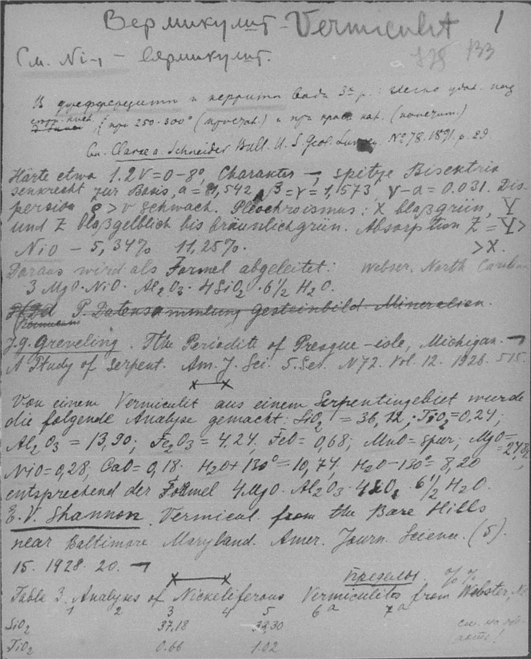 Вермикулит - Vermiculit 1
См. Ni - вермикулит. 133
В джефферсите и керрите вода 3х р.: легко удал. над
при 250-300°
См. Clarce a. Schneider Bull. U. S. Geol. Survey. № 78. 1891, p. 29
Härte etwa 1. 2V=0-8°, Charakter -, spitze Bisectrix
senkrecht zur Basis, α = 1,542, β=γ=1,573 γ-α=0.031. Dis-
persion ρ > v schwach. Pleochroismus: X blaßgrün, Y
und Z blaßgelblich bis bräunlichgrün. Absorption Z = Y >
NiO - 5,34% 11,25%. > X.
Daraus wird als Formel abgeleitet: Webster, North
3 MgO · NiO · Al2O3 · 4 SiO2 · 6 1/2 H2O.
P. Datensammlung Gesteinbild Mineralien.
J. g. Greveling. The Peridotite of Presque-isle, Michigan.
A Study of Serpent. Am. J. Sci. 5. Ser. N 72. Vol. 12. 1926. 515
Von einem Vermiculit aus einem Serpentingebiet wurde
die folgende Analyse gemacht: SiO2 = 36,12, TiO2=0,24;
Al2O3 = 13,90; Fe2O3 = 4.24. FeO = 0,68; MnO = Spur; MgO=
NiO=0,28, CaO=0,18. H2O+130°=10,74. H2O-130°= 8,20
entsprechend der Formel 4 MgO · Al2O3 · 4 SiO2 · 6 1/2 H2O.
E. V. Shannon. Vermicul from the Bare Hills
near Baltimore Maryland. Amer. Journ. Science. (5).
15. 1928. 20.
пределы %%
Table 3. Analyses of Nickeliferous Vermiculites from Webster,
1 2 3 4 5 6a 7a
SiO2 37,18 39,30
TiO2 0.66 1.02